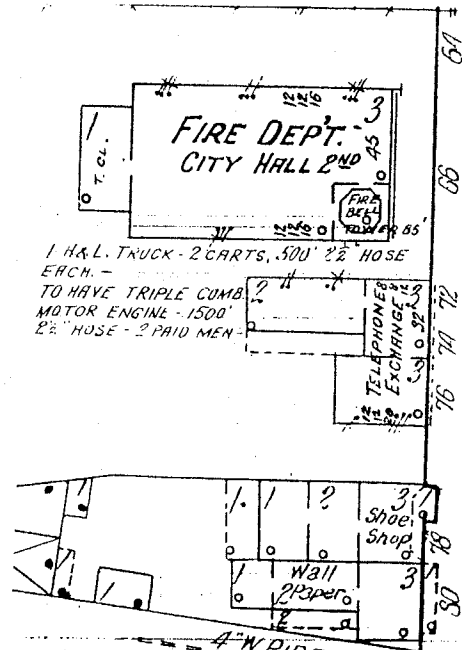 64
12
12
16
3
FIRE DEP'T.
CITY HALL 2ND
45
1
T. CL.
66
FIRE
BELL
TOWER 85'
12
12
16
1 H.& L. TRUCK - 2 CARTS, 500' 2½" HOSE
EACH.-
TO HAVE TRIPLE COMB.
MOTOR ENGINE - 1500'
2½" HOSE - 2 PAID MEN-
2
TELEPHONE
EXCHANGE
3
32'
3
72
74
76
1
1
1
2
3
1
Shoe
Shop
78
1
1
1
Wall
Paper
2
2
3
1
80
4" W. PIPE